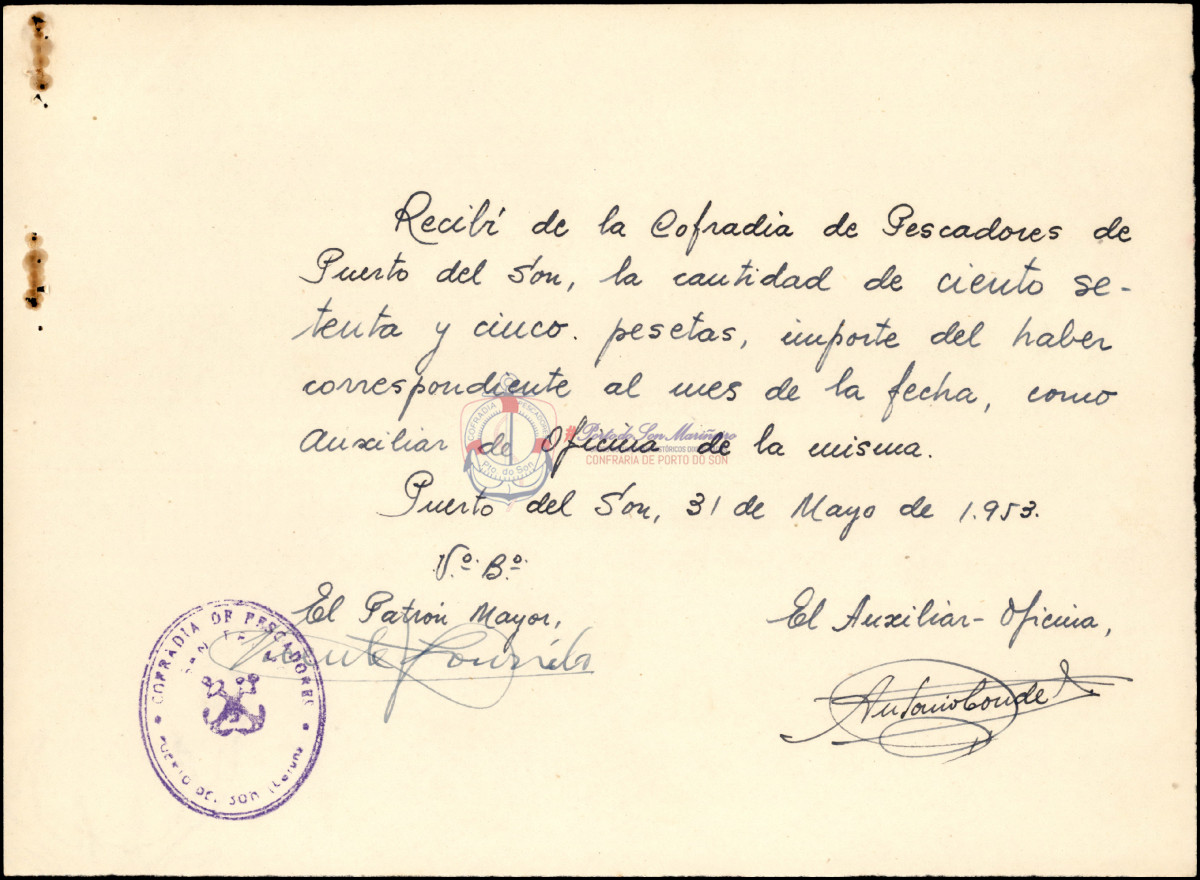 Recibí de la Cofradia de Pescadores de
Puerto del Son, la cantidad de ciento se-
tenta y cinco. pesetas, importe del haber
correspondiente al mes de la fecha, como
Auxiliar de Oficina de la misma.
COFRADIA PESCADORES
Pto. do Son
#Porto do Son Mariñeiro
CONFRARÍA DE PORTO DO SON
Puerto del Son, 31 de Mayo de 1.953.
V.º B.º
El Patrón Mayor,
El Auxiliar-Oficina,
Antonio Conde
COFRADIA DE PESCADORES
PUERTO DEL SON